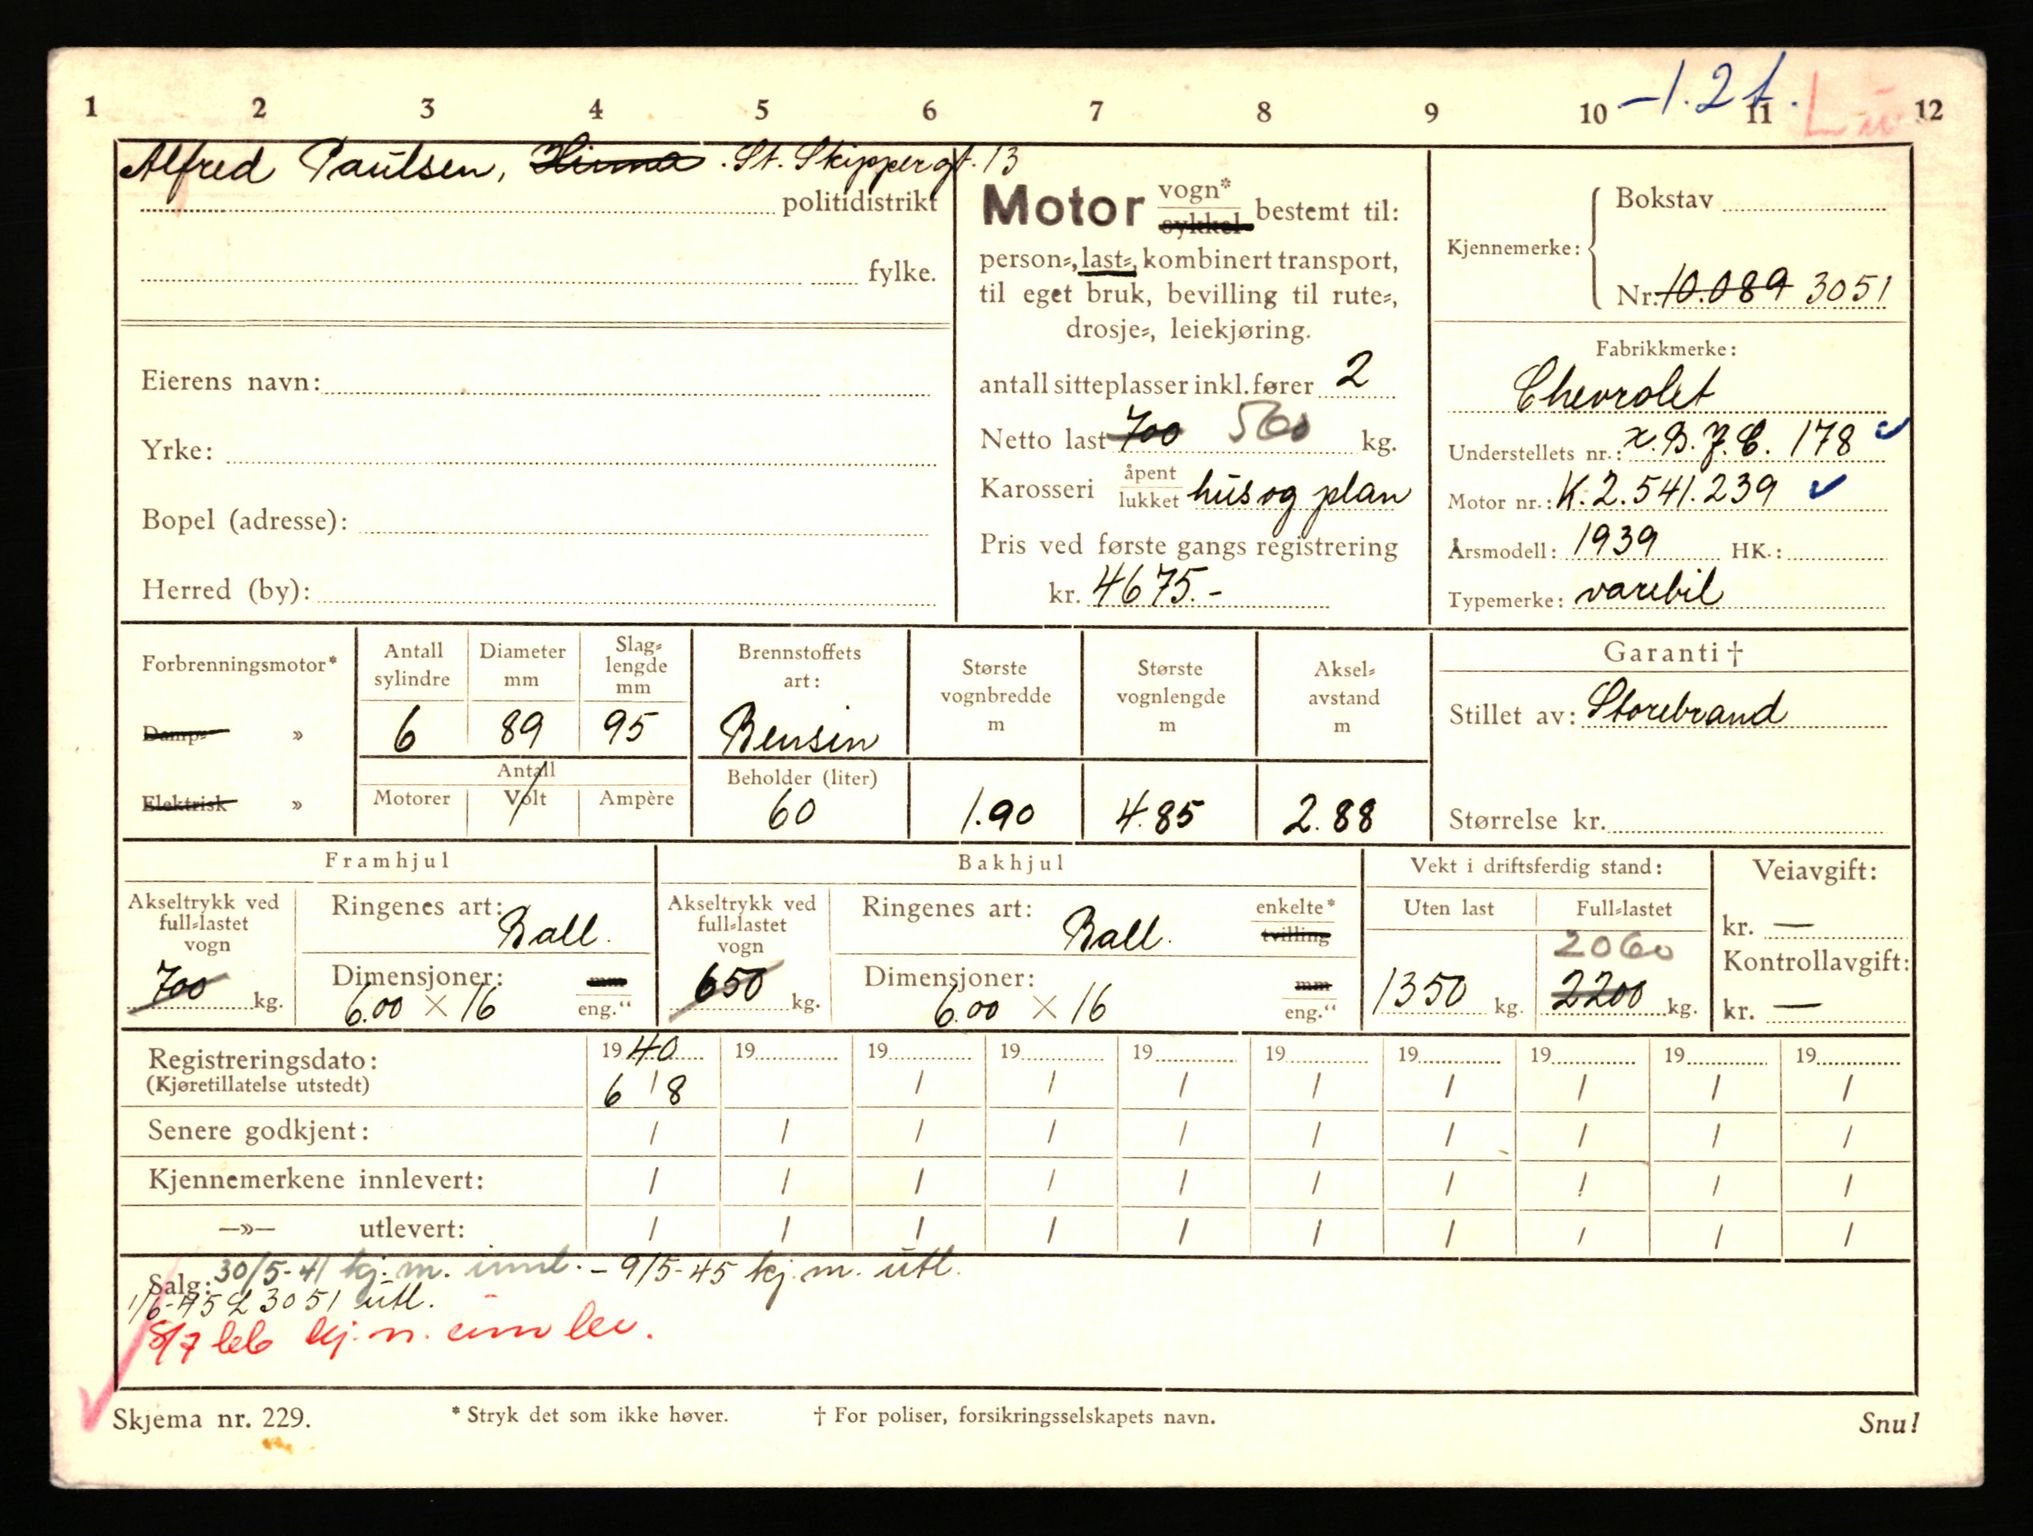 1 2 3 4 5 6 7 8 9 10 11 12
-1.2t.
Alfred Paulsen, Hinna. St. Skippergt. 13
politidistrikt
fylke.
Eierens navn:
Yrke:
Bopel (adresse):
Herred (by):
Motor vogn* sykkel bestemt til:
person-, last-, kombinert transport,
til eget bruk, bevilling til rute-,
drosje-, leiekjøring.
antall sitteplasser inkl. fører 2
Netto last 700 560 kg.
Karosseri åpent lukket hus og plan
Pris ved første gangs registrering
kr. 4675.-
Bokstav
Kjennemerke:
Nr. 10.089 3051
Fabrikkmerke:
Chevrolet
Understellets nr.: x.B.J.C. 178
Motor nr.: K.2.541.239
Årsmodell: 1939 HK.:
Typemerke: varebil
Forbrenningsmotor*
Damp- »
Elektrisk »
Antall sylindre
6
Diameter mm
89
Slag-lengde mm
95
Antall
Motorer Volt Ampère
Brennstoffets art:
Bensin
Beholder (liter)
60
Største vognbredde m
1.90
Største vognlengde m
4.85
Aksel-avstand m
2.88
Garanti †
Stillet av: Storebrand
Størrelse kr.
Framhjul
Akseltrykk ved full-lastet vogn
700 kg.
Ringenes art: Ball.
Dimensjoner: mm
6.00 × 16 eng.“
Bakhjul
Akseltrykk ved full-lastet vogn
650 kg.
Ringenes art: Ball. enkelte* tvilling
Dimensjoner: mm
6.00 × 16 eng.“
Vekt i driftsferdig stand:
Uten last Full-lastet
2060
1350 kg. 2200 kg.
Veiavgift:
kr. —
Kontrollavgift:
kr. —
Registreringsdato: 1940 19 19 19 19 19 19 19 19 19
(Kjøretillatelse utstedt) 6/8 / / / / / / / /
Senere godkjent: / / / / / / / / / /
Kjennemerkene innlevert: / / / / / / / / / /
—»— utlevert: / / / / / / / / / /
Salg: 30/5-41 kj.m. innl. - 9/5-45 kj.m. utl.
1/6-45 L 3051 utl.
8/7 66 kj.m. innlev.
Skjema nr. 229.
* Stryk det som ikke høver.
† For poliser, forsikringsselskapets navn.
Snu!